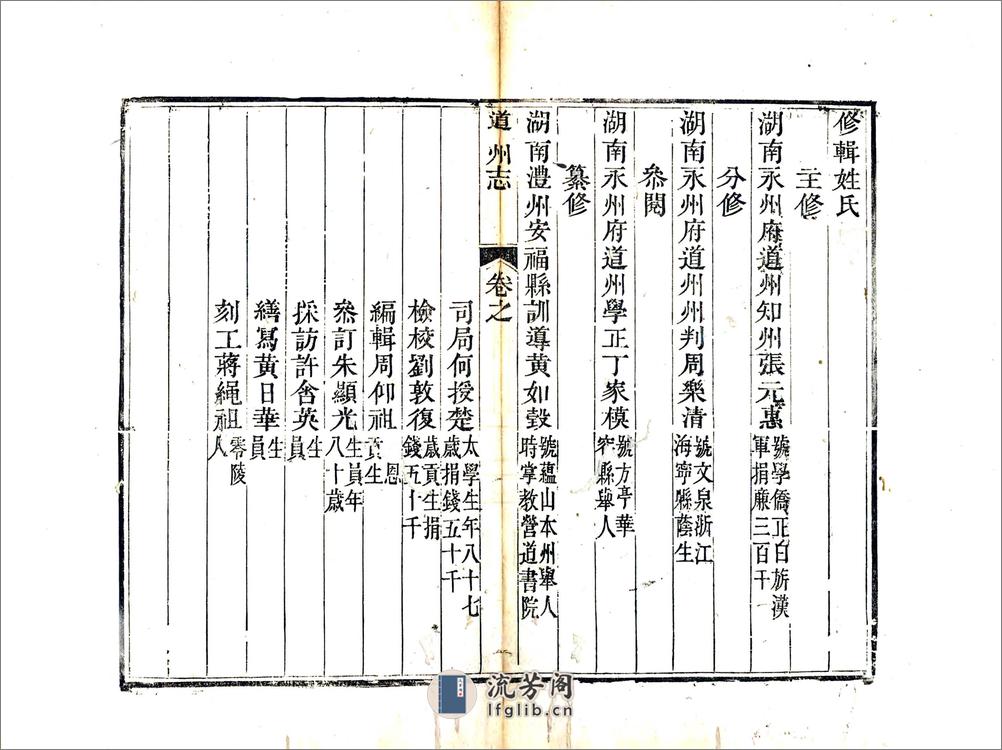 修輯姓氏
主修
湖南永州府道州知州張元惠 號學僑正白旂漢軍捐廉三百千
分修
湖南永州府道州州判周樂清 號文泉浙江海寧縣蔭生
叅閱
湖南永州府道州學正丁家模 號方亭華容縣舉人
纂修
湖南澧州安福縣訓導黄如瑴 號蘊山本州舉人時掌教營道書院
道州志 卷之
司局何授楚 太學生年八十七歲捐錢五十千
檢校劉敦復 歲貢生捐錢五十千
編輯周仰祖 恩貢生
叅訂朱顯光 生員年八十歲
採訪許含英 生員
繕寫黄日華 生員
刻工蔣繩祖 零陵人
流芳阁
lfglib.cn